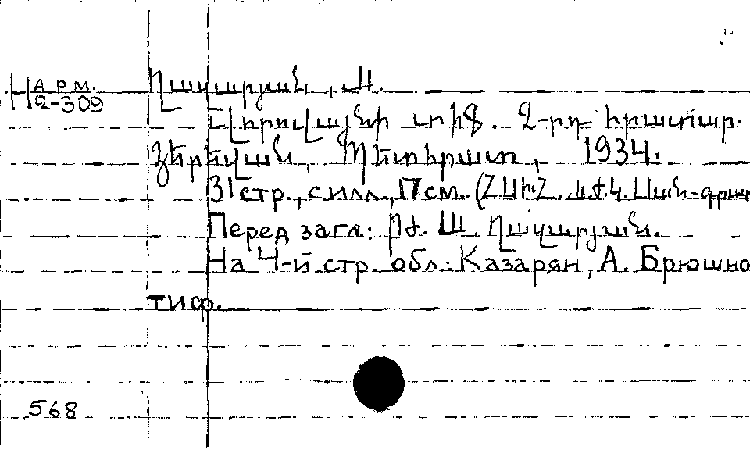 Арм.
2-309
Ղազարյան, Ա.
Վերադարձի տիֆ. 2-րդ հրատար.
Յերևան, Պետհրատ, 1934.
31 стр., силл., 17см. (ՀՍԽՀ. ԱԺԿ. Սան-
Перед загл.: Բժ. Ա. Ղազարյան.
На 4-й стр. обл.: Казарян, А. Брюшно
тиф.
568